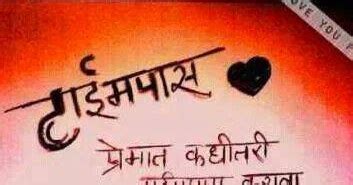 LOVE YOU F
टाईमपास
प्रेमात कधीतरी